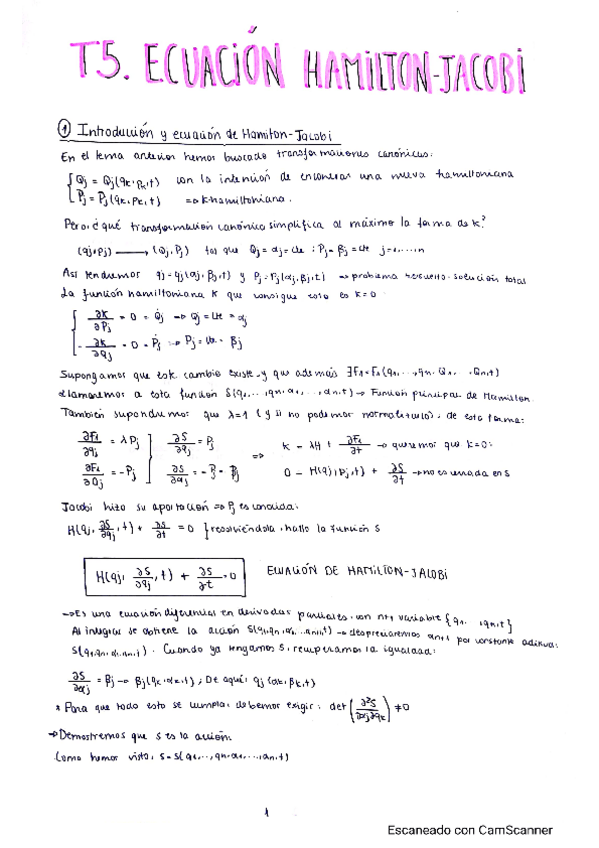 T5. ECUACIÓN HAMILTON-JACOBI
① Introducción y ecuación de Hamilton-Jacobi
En el tema anterior hemos buscado transformaciones canónicas:
{ Qj = Qj(qk, pk, t) con la intención de encontrar una nueva hamiltoniana
Pj = Pj(qk, pk, t) ⇒ k hamiltoniana.
Pero, ¿qué transformación canónica simplifica al máximo la forma de k?
(qj, pj) ⟶ (Qj, Pj) tos que Qj = αj = cte ; Pj = βj = cte j=1,...,n
Así tendremos qj = qj(αj, βj, t) y pj = pj(αj, βj, t) → problema resuelto. solución total
La función hamiltoniana k que consigue esto es k = 0
{ ∂k/∂Pj = 0 = Q̇j → Qj = cte = αj
- ∂k/∂Qj = 0 = Ṗj → Pj = cte = βj
Supongamos que este cambio existe y que además ∃F1 = F1(q1, ..., qn, Q1, ..., Qn, t)
Llamaremos a esta función S(q1, ..., qn, α1, ..., αn, t) → Función principal de Hamilton.
También supondremos que λ=1 (y si no podemos normalizarlo), de esta forma:
∂F1/∂qj = λ Pj ] ∂S/∂qj = Pj k - λH + ∂F1/∂t → queremos que k=0:
⇒
∂F1/∂Qj = -Pj ] ∂S/∂αj = -Pj = βj 0 - H(qj, pj, t) + ∂S/∂t → no es cerrada en S
Jacobi hizo su aportación ⇒ Pj es conocida:
H(qj, ∂S/∂qj, t) + ∂S/∂t = 0 } resolviéndola, hallo la función S
H(qj, ∂S/∂qj, t) + ∂S/∂t = 0 ECUACIÓN DE HAMILTON-JACOBI
→ Es una ecuación diferencias en derivadas parciales, con n+1 variable {q1, ..., qn, t}
Al integrar se obtiene la acción S(q1, qn, α1, ..., αn+1, t) → despreciaremos αn+1 por constante aditiva:
S(q1, qn, α1, αn, t). Cuando ya tengamos S, recuperamos la igualdad:
∂S/∂αj = βj → βj(qk, αk, t) ; De aquí: qj(αk, βk, t)
* Para que todo esto se cumpla, debemos exigir: det (∂²S/∂αj∂qk) ≠ 0
→ Demostremos que S es la acción
Como hemos visto, S = S(q1, ..., qn, α1, ..., αn, t)
1
Escaneado con CamScanner